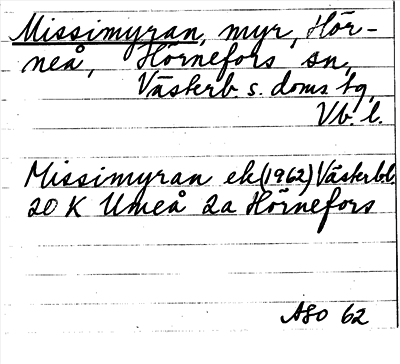 Missimyran, myr, Hör-
neå, Hörnefors sn,
Västerb s. doms tg,
Vb. l.
Missimyran ek (1962) Västerbl.
20 K Umeå 2a Hörnefors
ASO 62